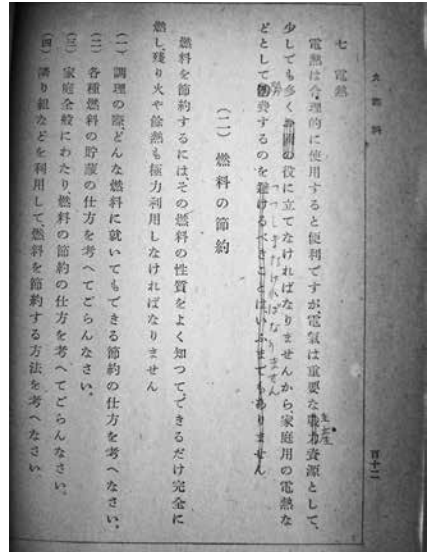 百十二
七 電熱
電熱は合理的に使用すると便利ですが、電氣は重要な戰力資源として、
生産
少しでも多くお國の役に立てなければなりませんから、家庭用の電熱な
つつしまなければなりません
どとして費するのを避けるべきことはいふまでもありません
(二) 燃料の節約
燃料を節約するには、その燃料の性質をよく知つて、できるだけ完全に
燃し、殘り火や餘熱も極力利用しなければなりません
(一) 調理の際、どんな燃料に就いてもできる節約の仕方を考へなさい。
(二) 各種燃料の貯藏の仕方を考へてごらんなさい。
(三) 家庭全般にわたり、燃料の節約の仕方を考へてごらんなさい。
(四) 隣り組などを利用して、燃料を節約する方法を考へなさい